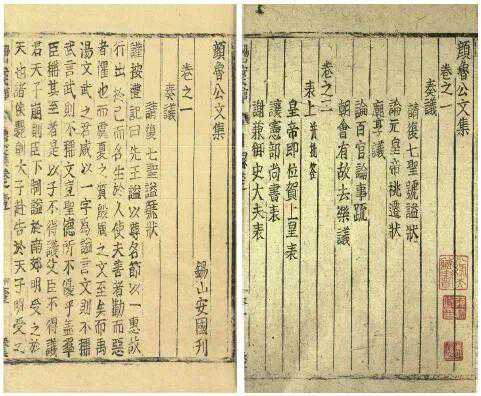 顏魯公文集
卷之一
奏議
請復七聖謚號狀
論元皇帝祧遷狀
廟享議
論百官論事疏
朝會有故去樂議
卷之二
表上 批答
皇帝即位賀上皇表
讓憲部尚書表
謝兼御史大夫表
顏魯公文集
錫山安國刊
卷之一
奏議
請復七聖謚號狀
謹按禮記曰先王謚以尊名節以一惠故
行出於己而名生於人使夫善者勸而惡
者懼也而虞夏之質殷周之文至矣而禹
湯文武之君咸以一字爲謚言文則不稱
武言武則不稱文豈聖德所不優乎蓋羣
臣稱其至者是以子不得議父臣不得議
君天子崩則臣下制謚於南郊明受之於
天也諸侯薨則太子赴告於天子明受之